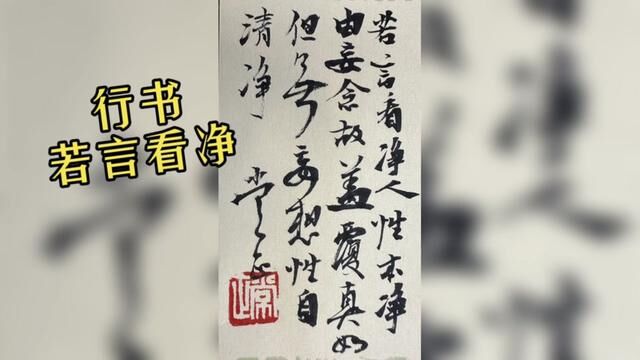 行书
若言看净
若言看净人性本净
由妄念故盖覆真如
但无妄想性自
清净